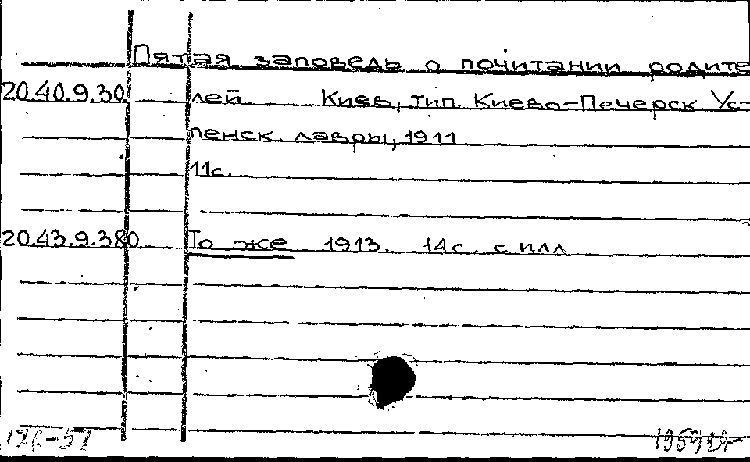 Пятая заповедь о почитании родите
20.40.9.30 лей Киев, тип. Киево-Печерск Ус-
пенск. лавры, 1911
11с.
20.43.9.380 То же 1913. 14с. с илл